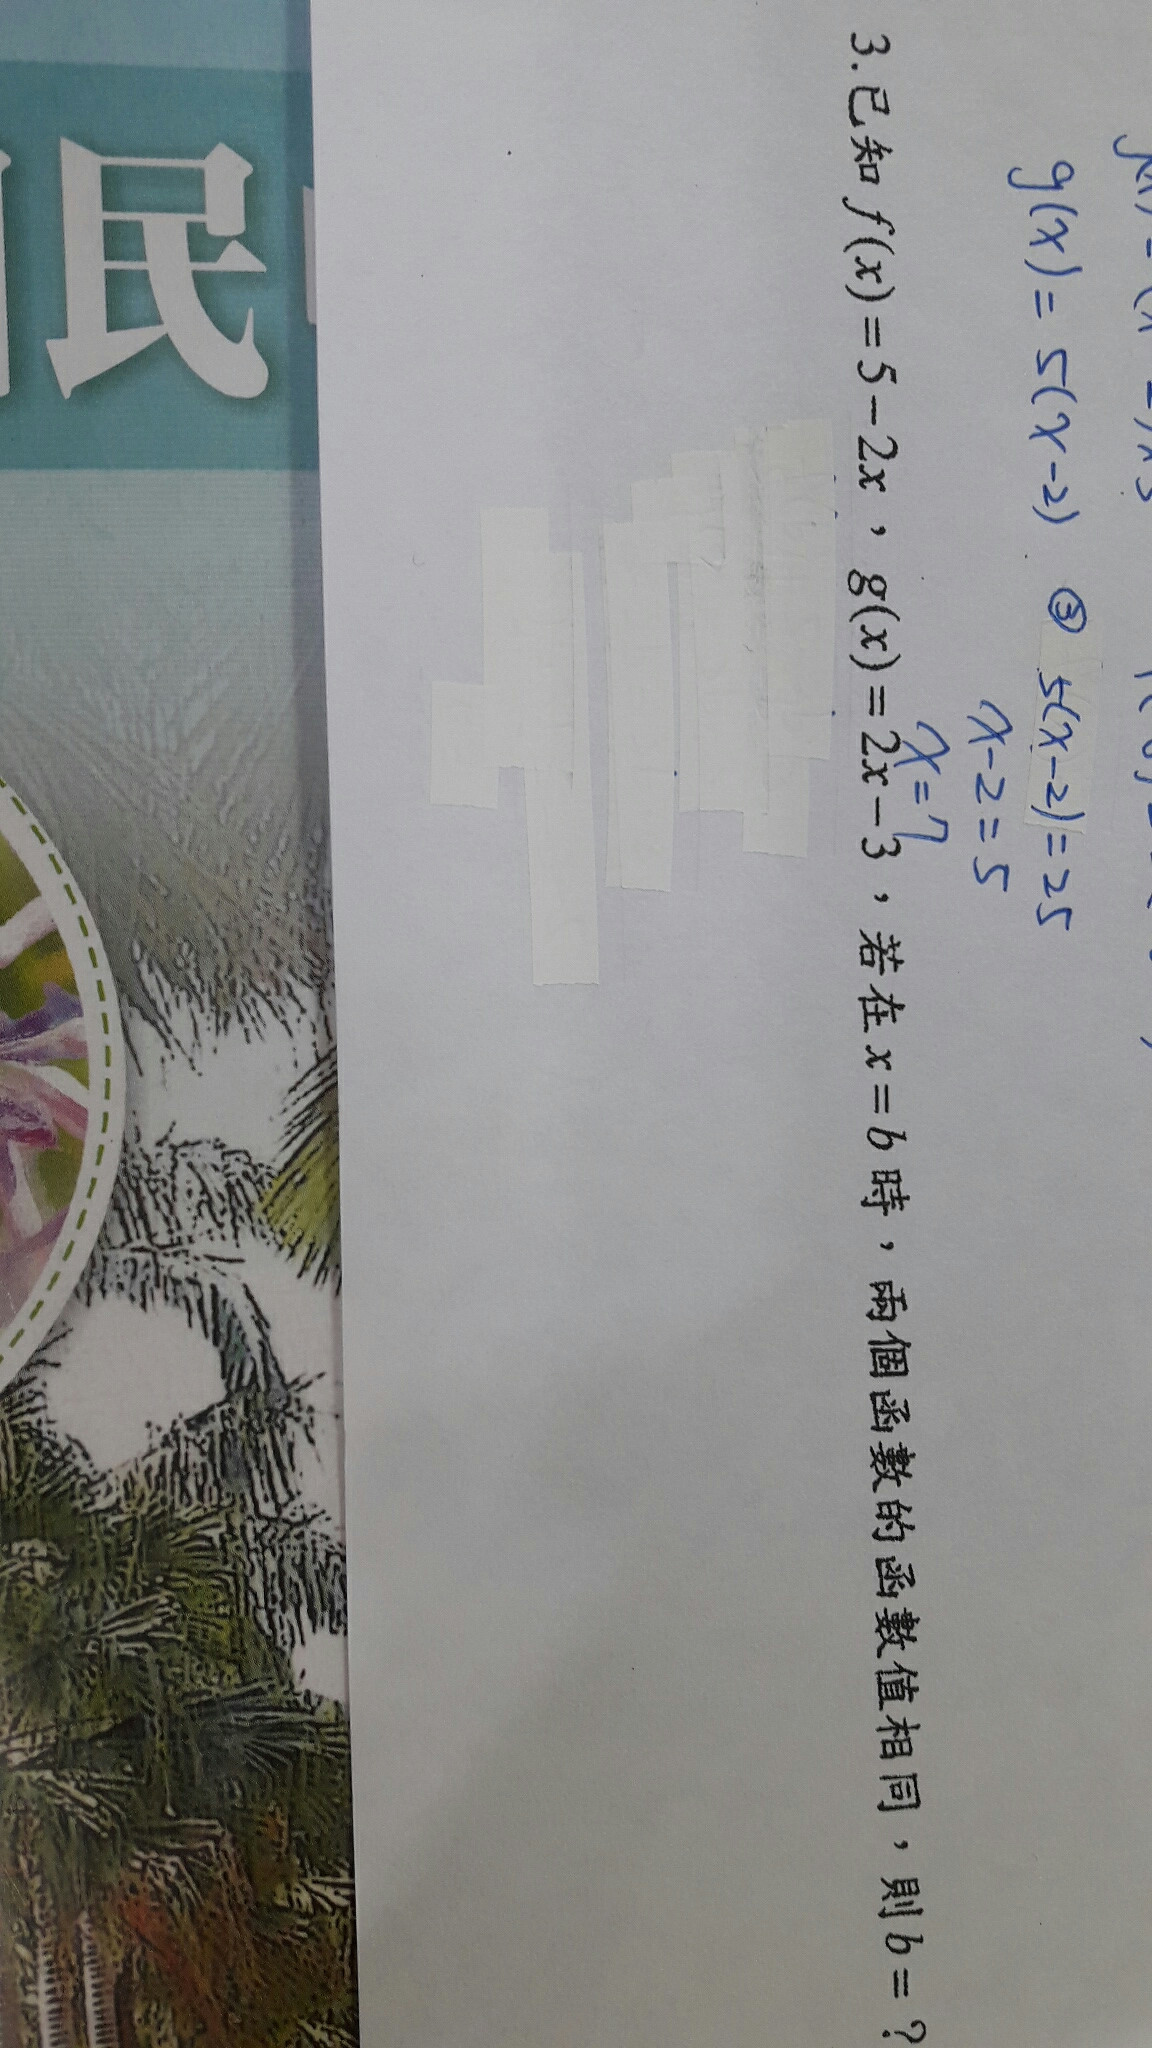 g(x) = 5(x-2) ③ 5(x-2) = 25
x-2=5
x=7
3.已知 f(x)=5-2x，g(x)=2x-3，若在 x=b 時，兩個函數的函數值相同，則 b=？
民